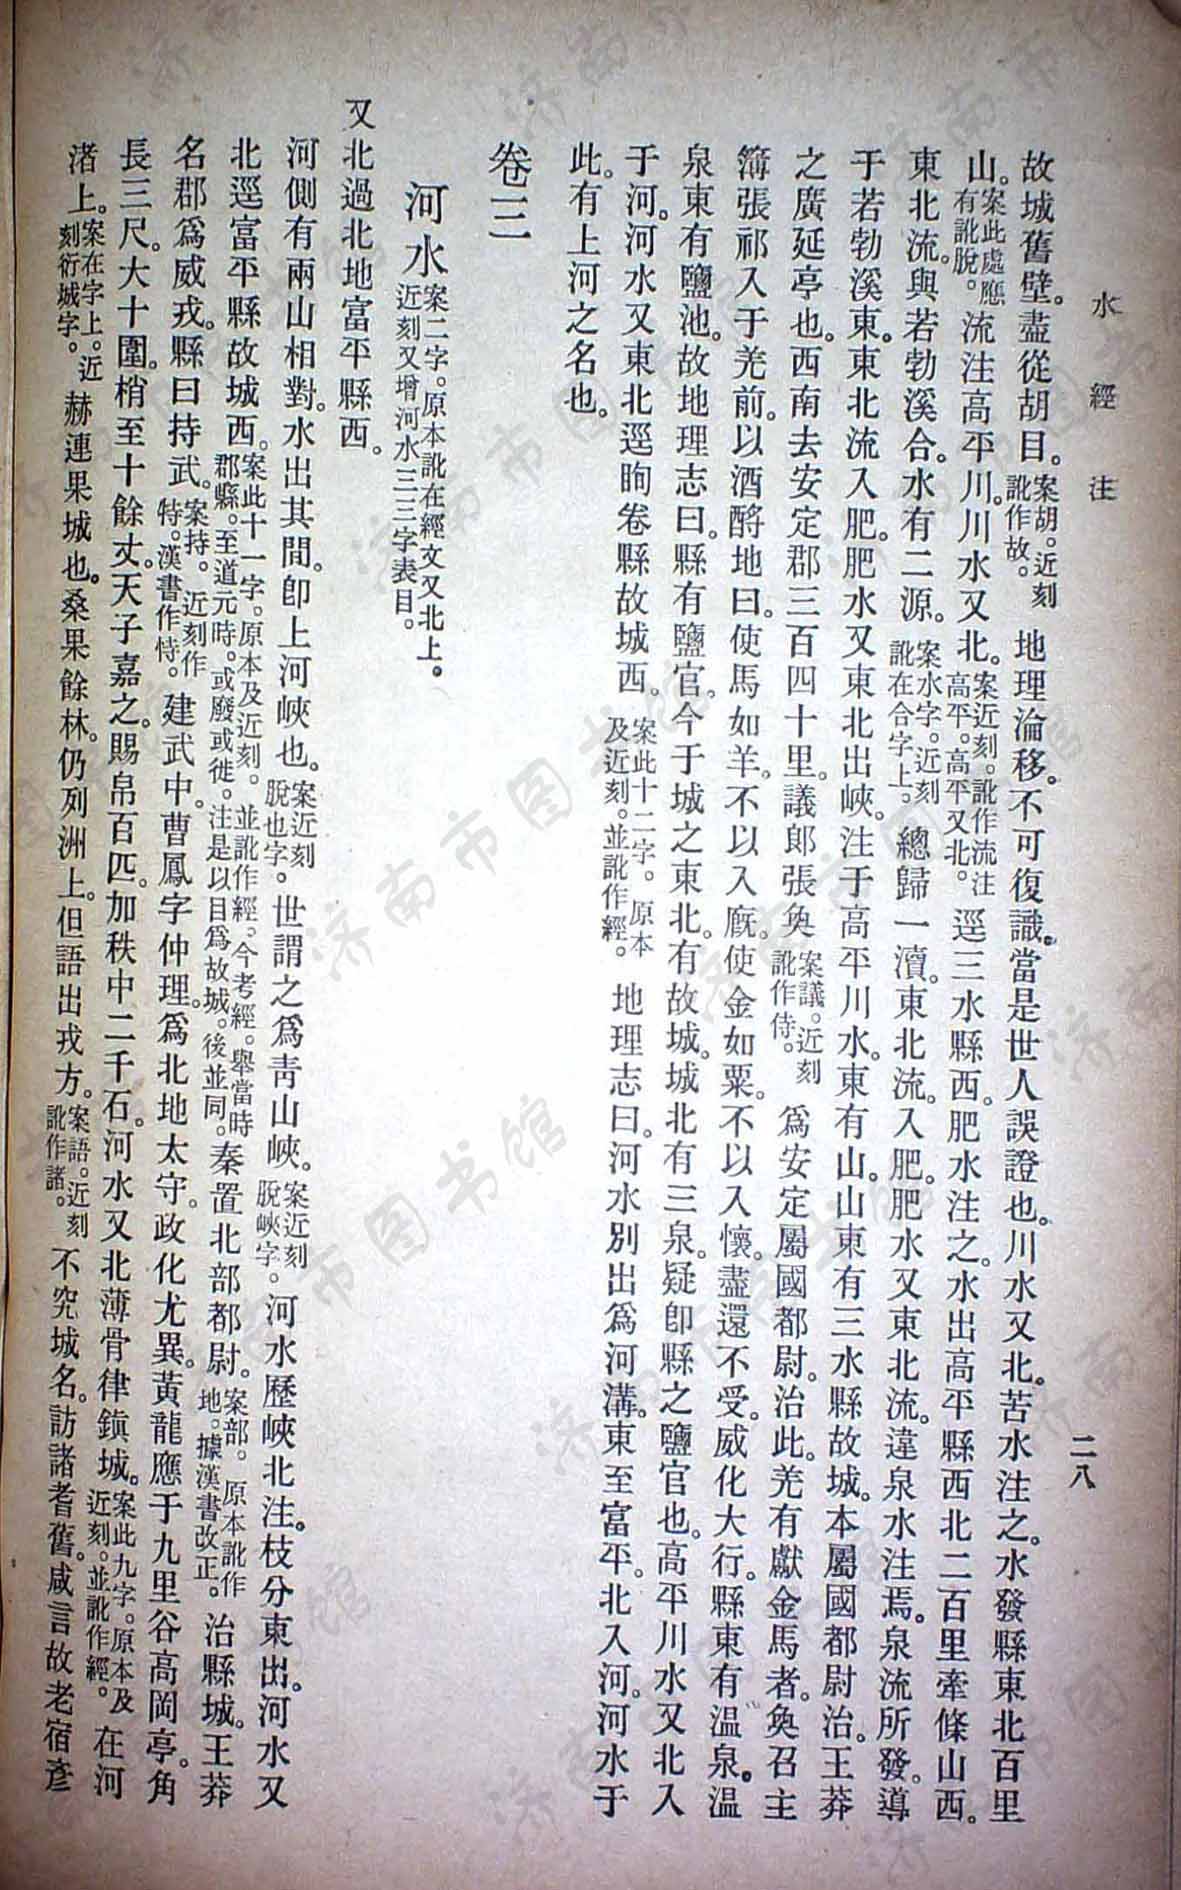 水經注
二八
故城舊壁。盡從胡目。案胡。近刻訛作故。地理淪移。不可復識。當是世人誤證也。川水又北。苦水注之。水發縣東北百里
山。案此處應有訛脫。流注高平川。川水又北。案近刻。訛作流注高平。高平又北。逕三水縣西。肥水注之。水出高平縣西北二百里牽條山西。
東北流。與若勃溪合。水有二源。案水字。近刻訛在合字上。總歸一瀆。東北流。入肥。肥水又東北流。違泉水注焉。泉流所發。導
于若勃溪東。東北流入肥。肥水又東北出峽。注于高平川水。東有山。山東有三水縣故城。本屬國都尉治。王莽
之廣延亭也。西南去安定郡三百四十里。議郞張奐案議。近刻訛作侍。爲安定屬國都尉。治此。羌有獻金馬者。奐召主
簿張祁入于羌前。以酒酹地曰。使馬如羊。不以入廐。使金如粟。不以入懷。盡還不受。威化大行。縣東有溫泉。溫
泉東有鹽池。故地理志曰。縣有鹽官。今于城之東北。有故城。城北有三泉。疑卽縣之鹽官也。高平川水又北入
于河。河水又東北逕眴卷縣故城西。案此十二字。原本及近刻。並訛作經。地理志曰。河水別出爲河溝。東至富平。北入河。河水于
此。有上河之名也。
卷三
河水案二字。原本訛在經文又北上。近刻又增河水三三字表目。
又北過北地富平縣西。
河側有兩山相對。水出其間。卽上河峽也。案近刻脫也字。世謂之爲靑山峽。案近刻脫峽字。河水歷峽北注。枝分東出。河水又
北逕富平縣故城西。案此十一字。原本及近刻。並訛作經。今考經。舉當時郡縣。至道元時。或廢或徙。注是以目爲故城。後並同。秦置北部都尉。案部。原本訛作地。據漢書改正。治縣城。王莽
名郡爲威戎。縣曰持武。案持。近刻作特。漢書作恃。建武中。曹鳳字仲理。爲北地太守。政化尤異。黃龍應于九里谷高岡亭。角
長三尺。大十圍。梢至十餘丈。天子嘉之。賜帛百匹。加秩中二千石。河水又北薄骨律鎭城。案此九字。原本及近刻。並訛作經。在河
渚上。案在字上。近刻衍城字。赫連果城也。桑果餘林。仍列洲上。但語出戎方。案語。近刻訛作諸。不究城名。訪諸耆舊。咸言故老宿彥